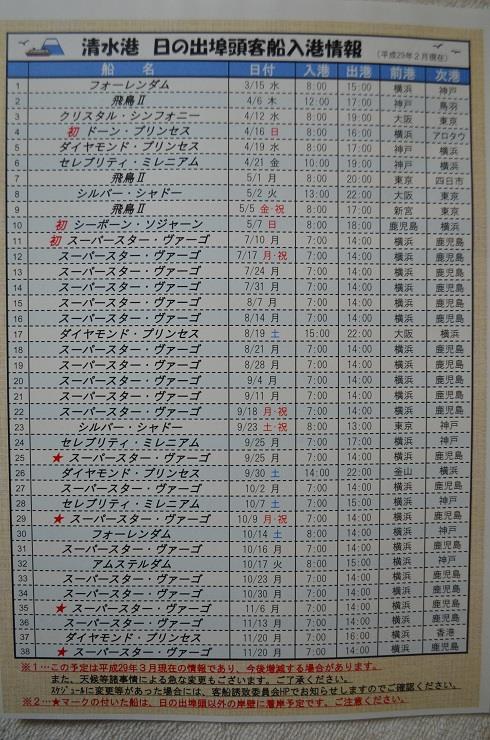 清水港 日の出埠頭客船入港情報 (平成29年2月現在)
船 名 日付 入港 出港 前港 次港
1 フォーレンダム 3/15 水 8:00 15:00 横浜 神戸
2 飛鳥Ⅱ 4/6 木 12:00 17:00 神戸 鳥羽
3 クリスタル・シンフォニー 4/12 水 8:00 19:00 大阪 東京
4 初 ドーン・プリンセス 4/16 日 8:00 16:00 横浜 アロタウ
5 ダイヤモンド・プリンセス 4/19 水 8:00 17:00 神戸 横浜
6 セレブリティ・ミレニアム 4/21 金 10:00 19:00 神戸 横浜
7 飛鳥Ⅱ 5/1 月 8:00 20:00 東京 四日市
8 シルバー・シャドー 5/2 火 13:00 22:00 大阪 東京
9 飛鳥Ⅱ 5/5 金・祝 8:00 17:00 新宮 東京
10 初 シーボーン・ソジャーン 5/7 日 8:00 18:00 鹿児島 横浜
11 初 スーパースター・ヴァーゴ 7/10 月 7:00 14:00 横浜 鹿児島
12 スーパースター・ヴァーゴ 7/17 月・祝 7:00 14:00 横浜 鹿児島
13 スーパースター・ヴァーゴ 7/24 月 7:00 14:00 横浜 鹿児島
14 スーパースター・ヴァーゴ 7/31 月 7:00 14:00 横浜 鹿児島
15 スーパースター・ヴァーゴ 8/7 月 7:00 14:00 横浜 鹿児島
16 スーパースター・ヴァーゴ 8/14 月 7:00 14:00 横浜 鹿児島
17 ダイヤモンド・プリンセス 8/19 土 15:00 22:00 大阪 横浜
18 スーパースター・ヴァーゴ 8/21 月 7:00 14:00 横浜 鹿児島
19 スーパースター・ヴァーゴ 8/28 月 7:00 14:00 横浜 鹿児島
20 スーパースター・ヴァーゴ 9/4 月 7:00 14:00 横浜 鹿児島
21 スーパースター・ヴァーゴ 9/11 月 7:00 14:00 横浜 鹿児島
22 スーパースター・ヴァーゴ 9/18 月・祝 7:00 14:00 横浜 鹿児島
23 シルバー・シャドー 9/23 土・祝 8:00 13:00 東京 神戸
24 セレブリティ・ミレニアム 9/25 月 7:00 17:00 横浜 神戸
25 ★ スーパースター・ヴァーゴ 9/25 月 7:00 14:00 横浜 鹿児島
26 ダイヤモンド・プリンセス 9/30 土 14:00 22:00 釜山 横浜
27 スーパースター・ヴァーゴ 10/2 月 7:00 14:00 横浜 鹿児島
28 セレブリティ・ミレニアム 10/7 土 7:00 15:00 横浜 神戸
29 ★ スーパースター・ヴァーゴ 10/9 月・祝 7:00 14:00 横浜 鹿児島
30 フォーレンダム 10/14 土 8:00 14:00 横浜 神戸
31 スーパースター・ヴァーゴ 10/16 月 7:00 14:00 横浜 鹿児島
32 アムステルダム 10/17 火 8:00 15:00 横浜 神戸
33 スーパースター・ヴァーゴ 10/23 月 7:00 14:00 横浜 鹿児島
34 スーパースター・ヴァーゴ 10/30 月 7:00 14:00 横浜 鹿児島
35 ★ スーパースター・ヴァーゴ 11/6 月 7:00 14:00 横浜 鹿児島
36 スーパースター・ヴァーゴ 11/13 月 7:00 14:00 横浜 鹿児島
37 ダイヤモンド・プリンセス 11/20 月 7:00 16:00 横浜 香港
38 ★ スーパースター・ヴァーゴ 11/20 月 7:00 14:00 横浜 鹿児島
※1…この予定は平成29年3月現在の情報であり、今後増減する場合があります。
また、天候等諸事情による急な変更もございます。ご了承ください。
スケジュールに変更等があった場合には、客船誘致委員会HPでお知らせしますのでご確認ください。
※2…★マークの付いた船は、日の出埠頭以外の岸壁に着岸予定です。ご注意ください。